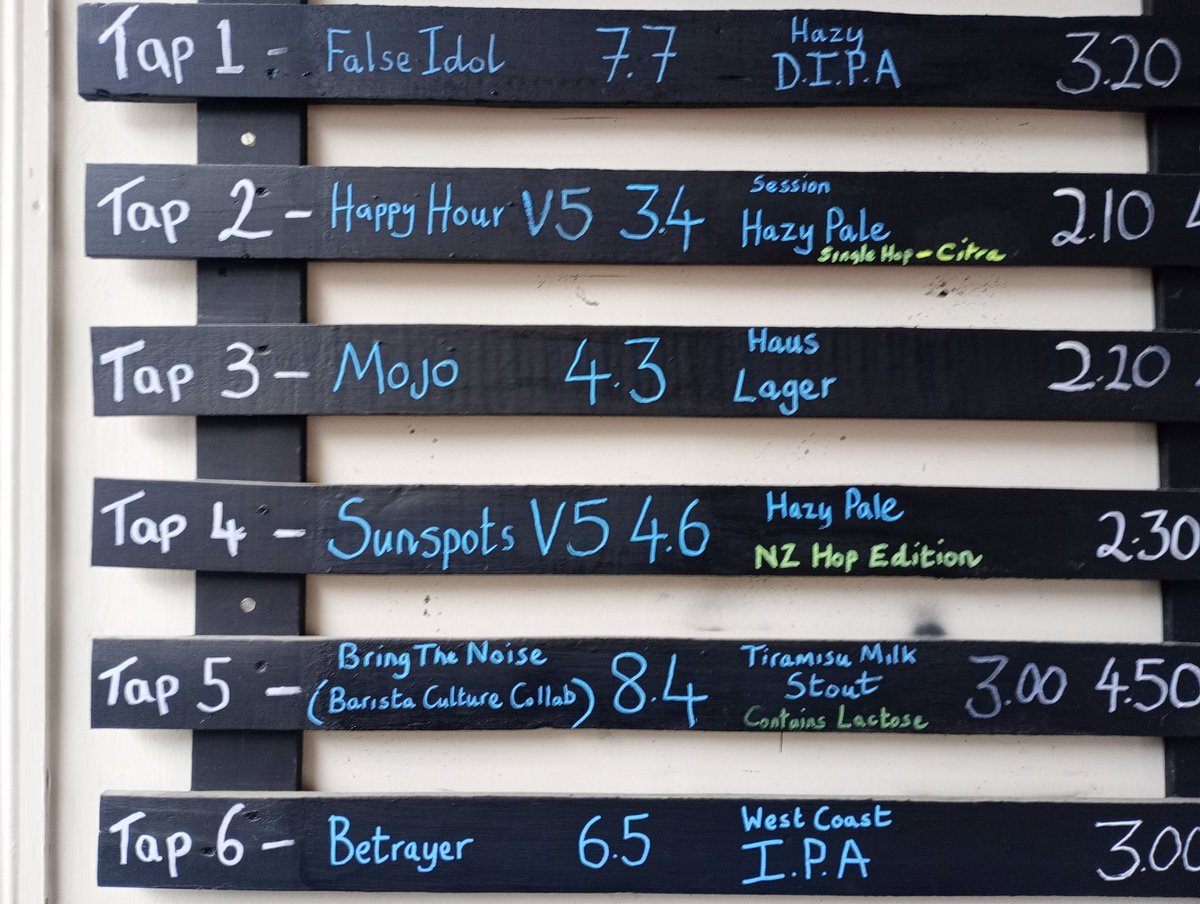 Tap 1 - False Idol 7.7 Hazy D.I.P.A 3.20
Tap 2 - Happy Hour V5 3.4 Session Hazy Pale Single Hop - Citra 2.10
Tap 3 - Mojo 4.3 Haus Lager 2.20
Tap 4 - Sunspots V5 4.6 Hazy Pale NZ Hop Edition 2.30
Tap 5 - Bring The Noise (Barista Culture Collab) 8.4 Tiramisu Milk Stout Contains Lactose 3.00 4.50
Tap 6 - Betrayer 6.5 West Coast I.P.A 3.00